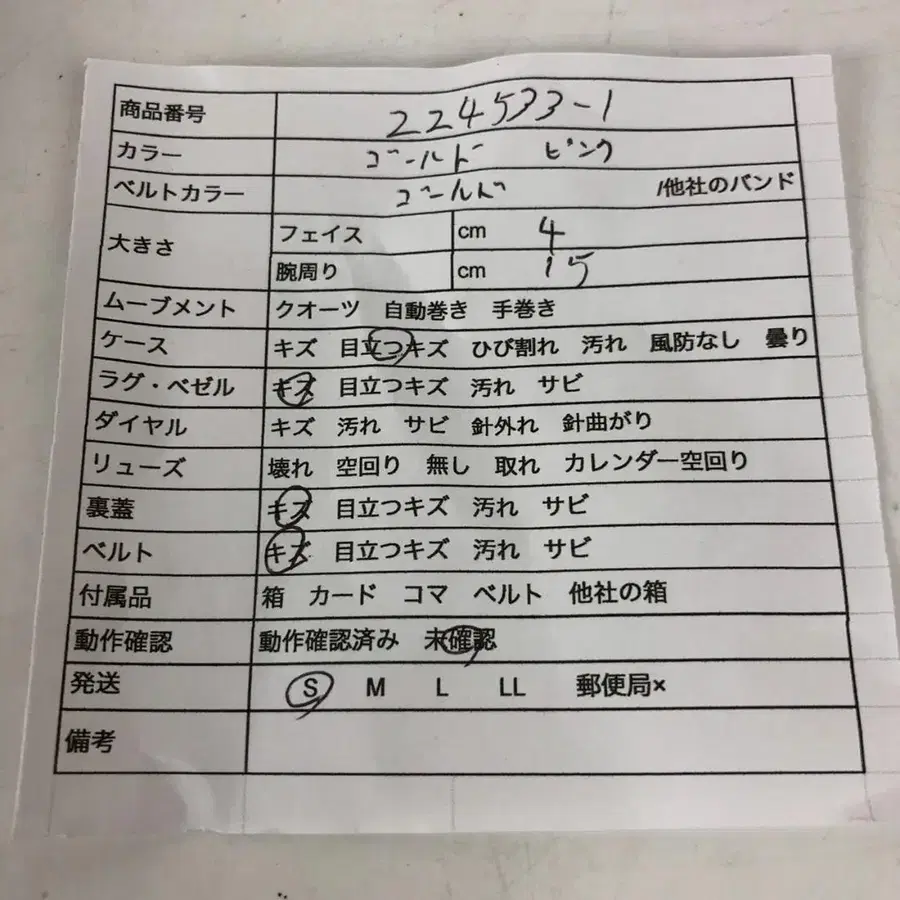 商品番号 224533-1
カラー ゴールド ピンク
ベルトカラー ゴールド /他社のバンド
大きさ フェイス cm 4
腕周り cm 15
ムーブメント クオーツ 自動巻き 手巻き
ケース キズ 目立つキズ ひび割れ 汚れ 風防なし 曇り
ラグ・ベゼル キズ 目立つキズ 汚れ サビ
ダイヤル キズ 汚れ サビ 針外れ 針曲がり
リューズ 壊れ 空回り 無し 取れ カレンダー空回り
裏蓋 キズ 目立つキズ 汚れ サビ
ベルト キズ 目立つキズ 汚れ サビ
付属品 箱 カード コマ ベルト 他社の箱
動作確認 動作確認済み 未確認
発送 S M L LL 郵便局×
備考